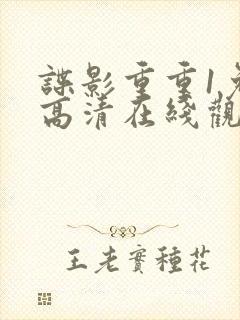 諜影重重1免
高清在綫觀
王老實種花